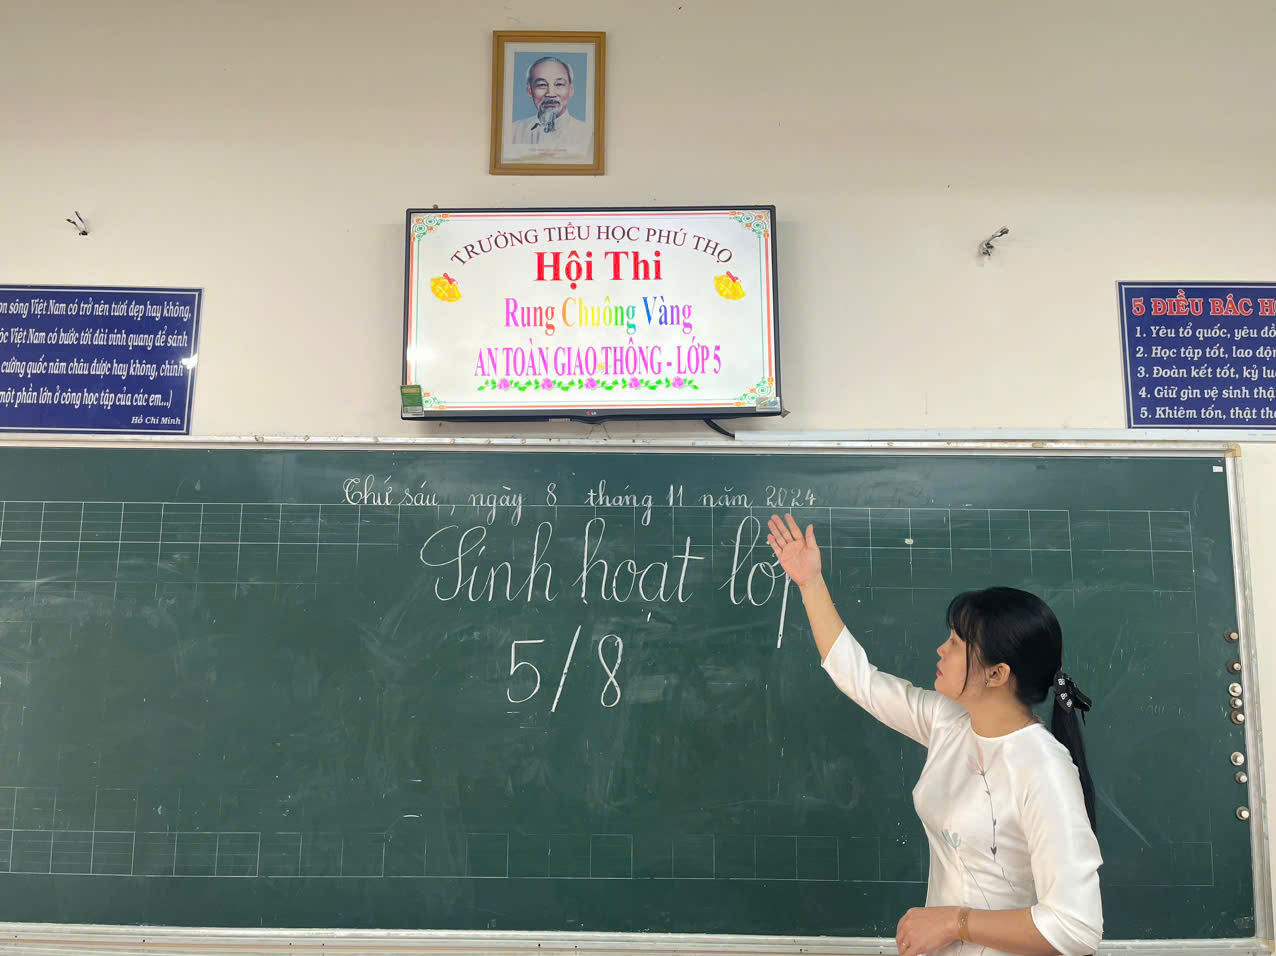 TRƯỜNG TIỂU HỌC PHÚ THỌ
Hội Thi
Rung Chuông Vàng
AN TOÀN GIAO THÔNG - LỚP 5
LG
sông Việt Nam có trở nên tươi đẹp hay không,
Việt Nam có bước tới đài vinh quang để sánh
cường quốc năm châu được hay không, chính
một phần lớn ở công học tập của các em...)
Hồ Chí Minh
5 ĐIỀU BÁC
1. Yêu tổ quốc, yêu
2. Học tập tốt, lao
3. Đoàn kết tốt, kỷ
4. Giữ gìn vệ sinh
5. Khiêm tốn, thật
Thứ sáu, ngày 8 tháng 11 năm 2024
Sinh hoạt lớp
5/8